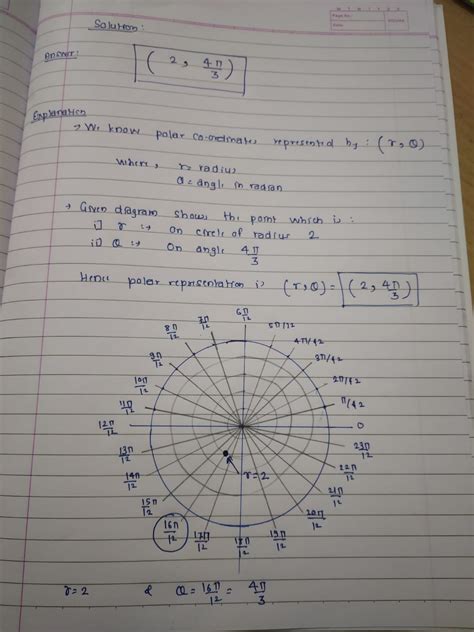 Page No.:
Date:
Solution:
Answer: ( 2, 4π/3 )
Explanation
→ We know polar co-ordinates represented by : (r, θ)
where, r = radius
θ = angle in radian
→ Given diagram shows the point which is :
i] r :→ on circle of radius 2
ii) θ :→ on angle 4π/3
Hence polar representation is (r, θ) = ( 2, 4π/3 )
6π/12
7π/12
5π/12
8π/12
4π/12
9π/12
3π/12
10π/12
2π/12
11π/12
π/12
12π/12
0
13π/12
23π/12
14π/12
22π/12
r=2
15π/12
21π/12
16π/12
20π/12
17π/12
18π/12
19π/12
r=2 & θ = 16π/12 = 4π/3